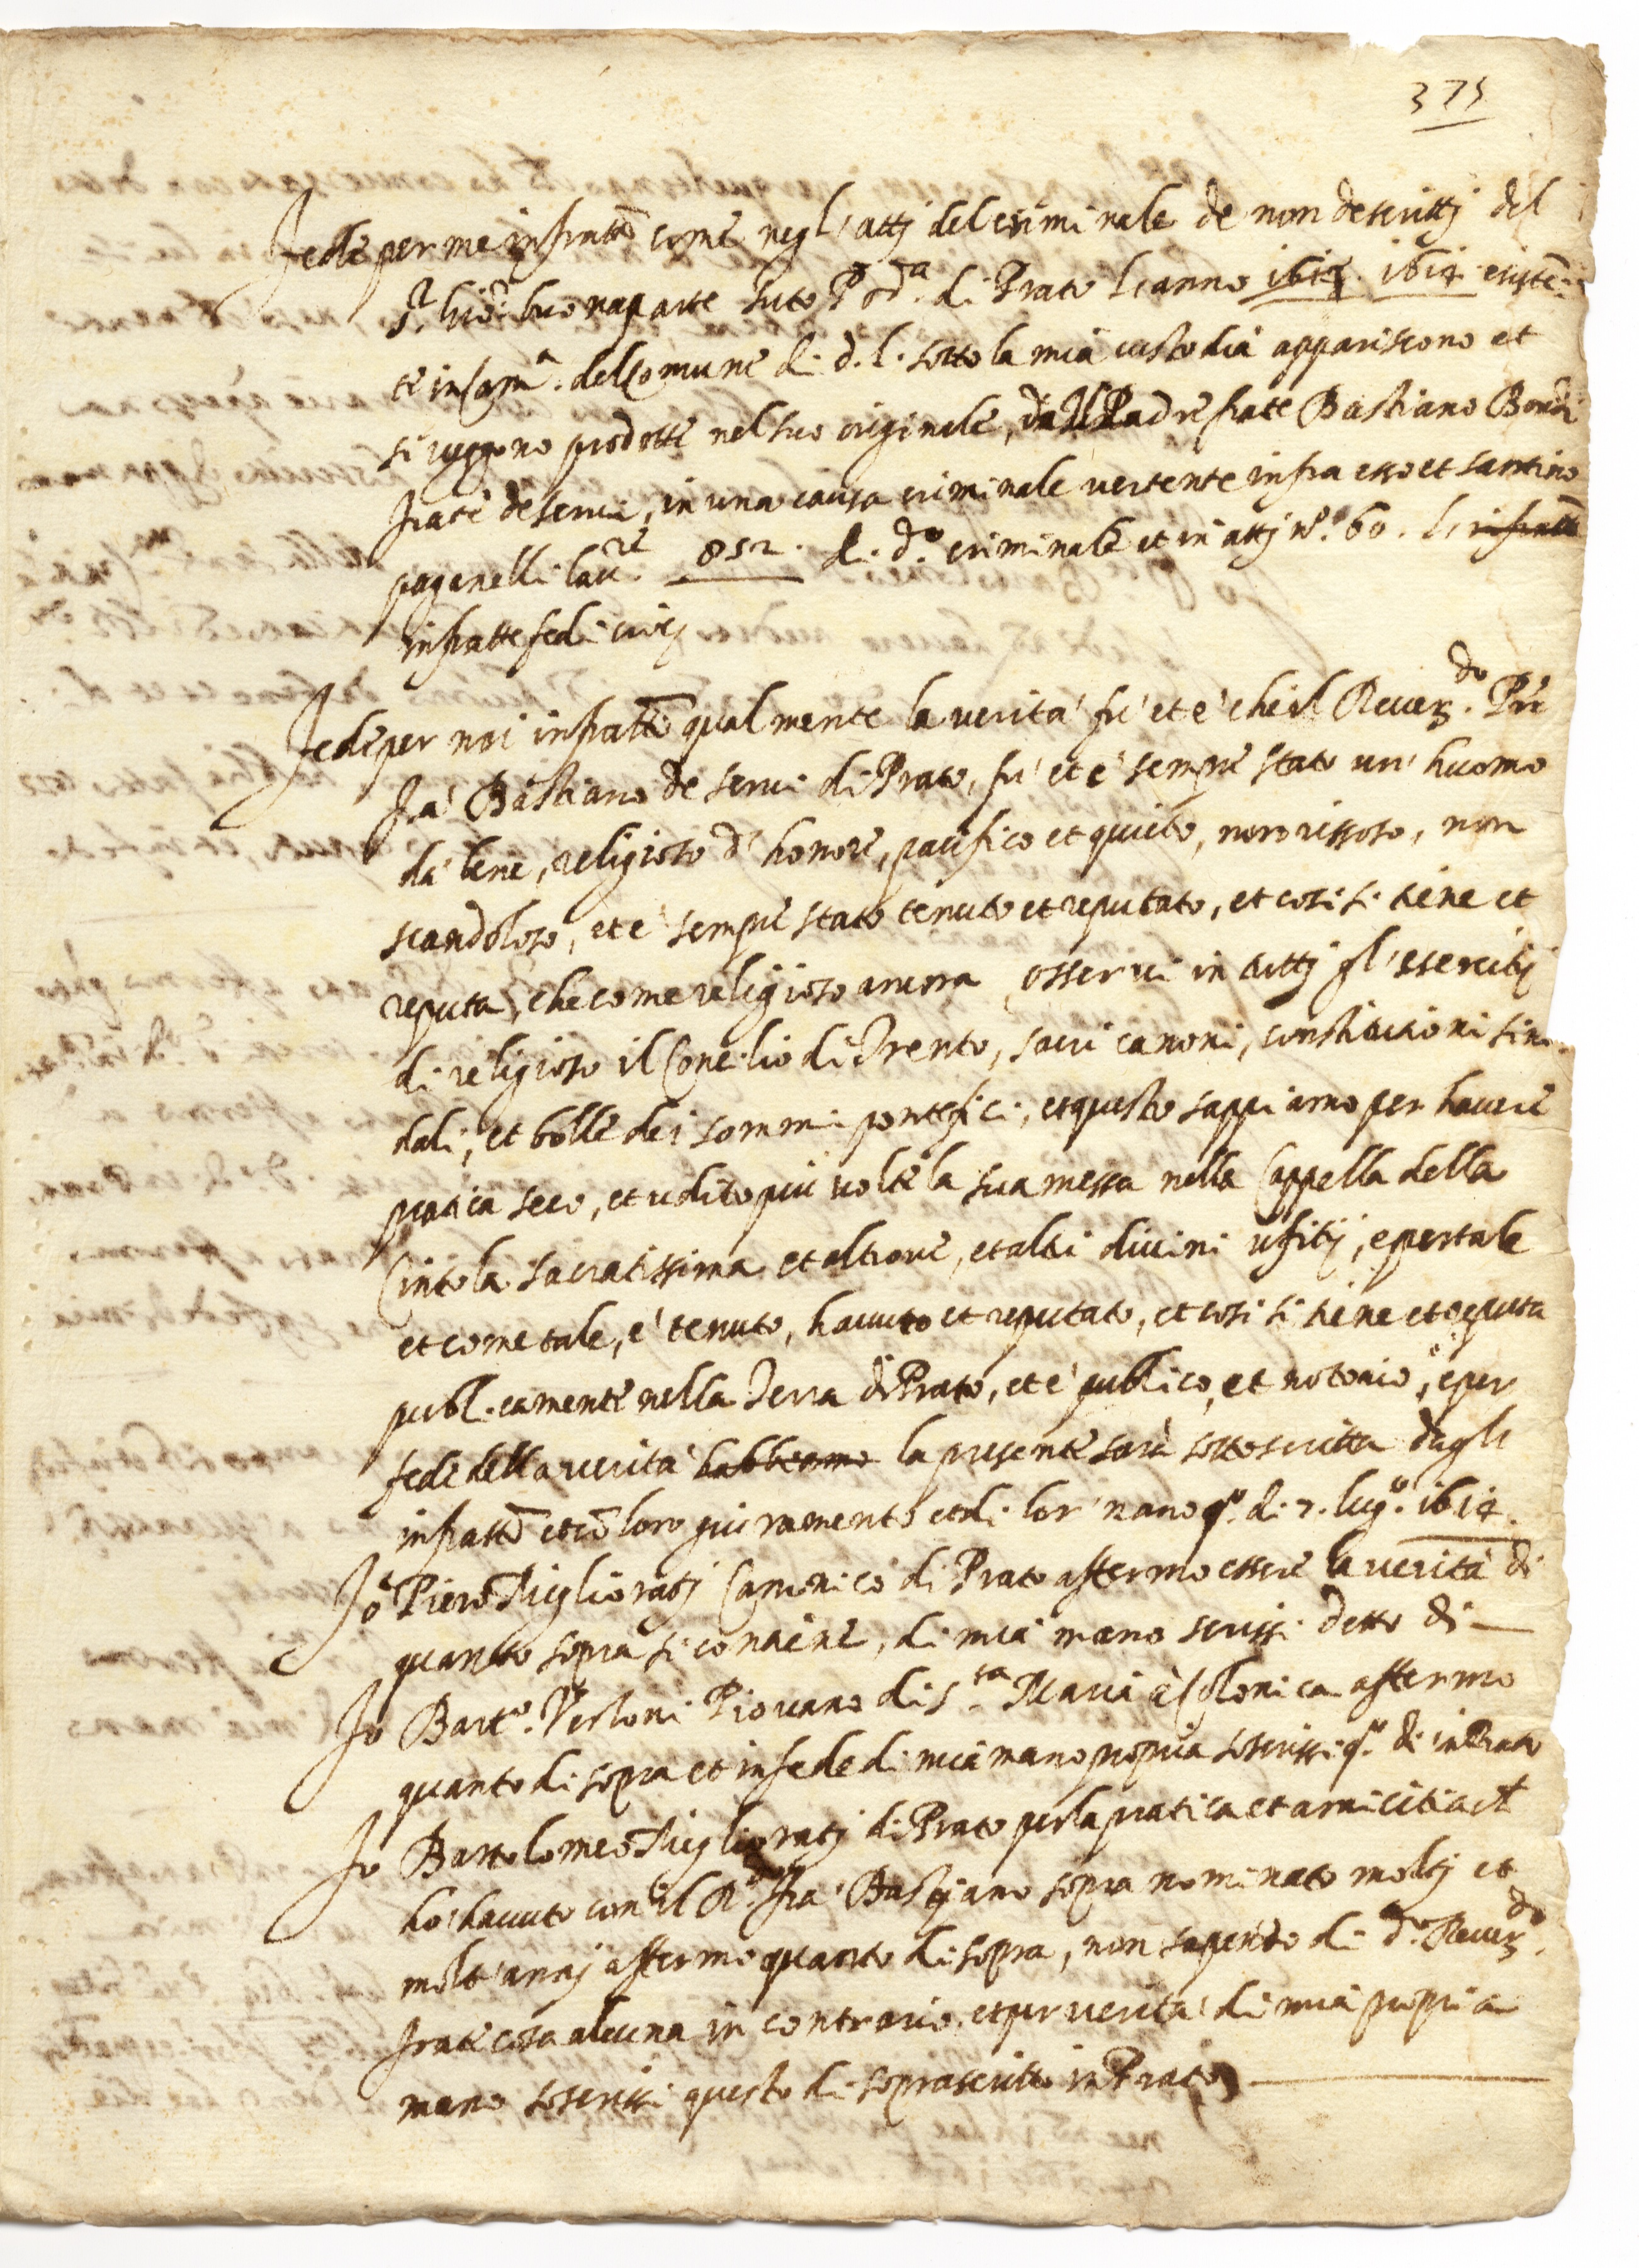 375
Fede per me infratto come negl'attj del criminale de non descrittj del
buonaparte suto Pod.ta di Prato l'anno 1613. 1614 existē=
te in Camra. del Comune di d.l. sotto la mia custodia appariscono et
si veggono prodotte nel suo originale, dal Padre frate Bastiano Bondi
frate de servi, in una causa criminale vertente infra esso et santino
paganelli 852. di d.o criminale et in attj n.o 60. l'infratte
infratte fedi cioè
Fede per noi infratti qualmente la verità fu et è che il Reuer.do Pre
fra Bastiano de serui di Prato, fu et è sempre stato un'huomo
da bene, religioso d'honore, pacifico et quieto, non rissoso, non
scandoloso, et è sempre stato tenuto et reputato, et cosi si tiene et
reputa, che come religioso ancora osserui in tuttj gl'esercitij
di religioso il Concilio di Trento, sacri canoni, constitutioni sino
dali, et bolle dei sommi pontefici, et questo sappiamo per hauere
pratica seco, et udito più uolte la sua messa nella Cappella della
Cintola sacratissima et altroue, et altri diuini ufitij, e per tale
et come tale, è tenuto, hauuto et reputato, et cosi si tiene et reputa
publicamente nella Terra di Prato, et è publico, et notorio, e per
fede della uerità habbiamo la presente sarà sottoscritta dagli
infratti et cō loro giuramento et di lor'mano q.o di 7. lug.o 1614.
Jo Piero Migliorati Canonico di Prato affermo essere la uerità di
quanto sopra si contiene, di mia mano scrissi detto di
Jo Bart.o Verzoni Piouano di S.ta Maria à Colonica affermo
quanto di sopra et in fede di mia mano propria soscrissi q.o di in Prato
Jo Bartolomeo Migliorati di Prato per la pratica et amicitia ch
ho hauuto con il R.do fra Bastiano sopra nominato moltj et
molt'annj affermo quanto di sopra, non sapendo di d.o Reuer.do
frate cosa alcuna in contrario, et per uerità di mia propria
mano soscrissi questo di soprascritto in Prato